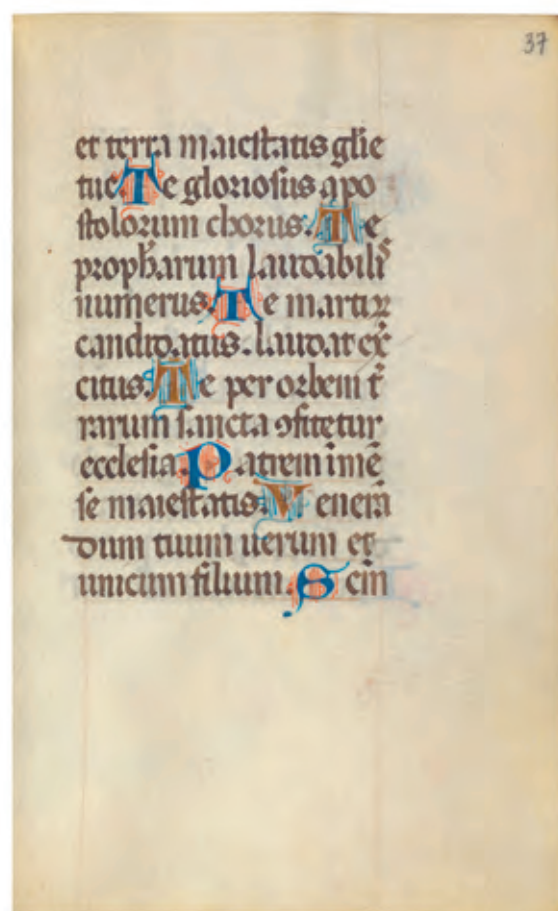 37
et terra maiestatis gl̄ie
tue. Te gloriosus apo
stolorum chorus. Te
propħarum laudabilis
numerus. Te martirꝝ
candidatus. laudat ex̄
citus. Te per orbem t̄
rarum sancta ꝯfitetur
ecclesia. Patrem īmē
se maiestatis. Venerā
dum tuum uerum et
unicum filium. Scm̄